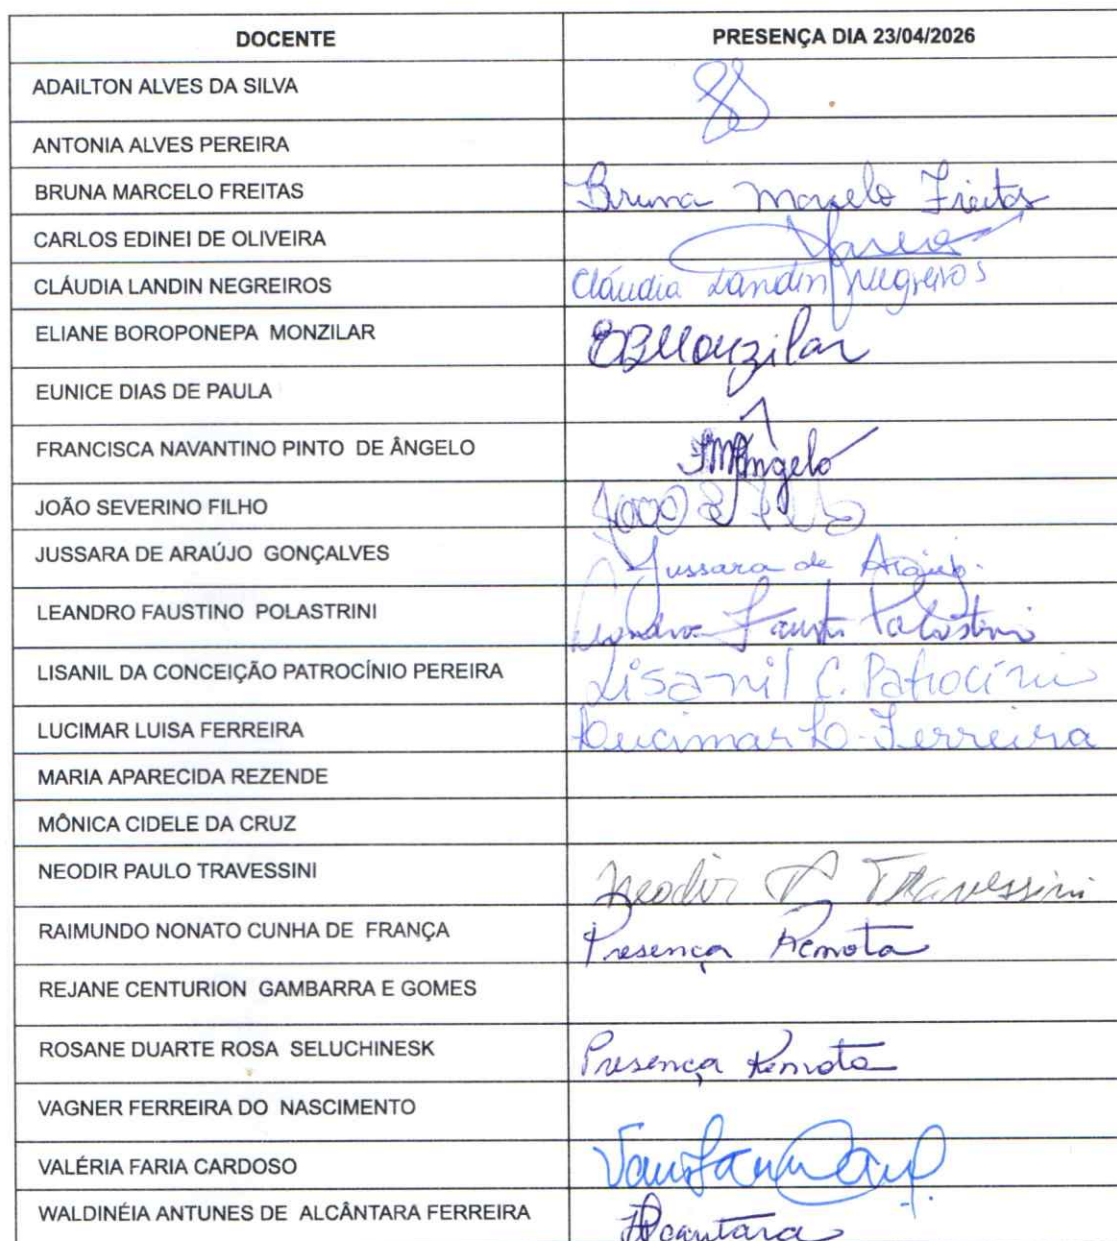 DOCENTE PRESENÇA DIA 23/04/2026
ADAILTON ALVES DA SILVA
ANTONIA ALVES PEREIRA
BRUNA MARCELO FREITAS Bruna Marcelo Freitas
CARLOS EDINEI DE OLIVEIRA
CLÁUDIA LANDIN NEGREIROS Cláudia Landin Negreiros
ELIANE BOROPONEPA MONZILAR EBMonzilar
EUNICE DIAS DE PAULA
FRANCISCA NAVANTINO PINTO DE ÂNGELO
JOÃO SEVERINO FILHO
JUSSARA DE ARAÚJO GONÇALVES Jussara de Araújo.
LEANDRO FAUSTINO POLASTRINI
LISANIL DA CONCEIÇÃO PATROCÍNIO PEREIRA Lisanil C. Patrocínio
LUCIMAR LUISA FERREIRA Lucimar L. Ferreira
MARIA APARECIDA REZENDE
MÔNICA CIDELE DA CRUZ
NEODIR PAULO TRAVESSINI Neodir P Travessini
RAIMUNDO NONATO CUNHA DE FRANÇA Presença Remota
REJANE CENTURION GAMBARRA E GOMES
ROSANE DUARTE ROSA SELUCHINESK Presença Remota
VAGNER FERREIRA DO NASCIMENTO
VALÉRIA FARIA CARDOSO
WALDINÉIA ANTUNES DE ALCÂNTARA FERREIRA